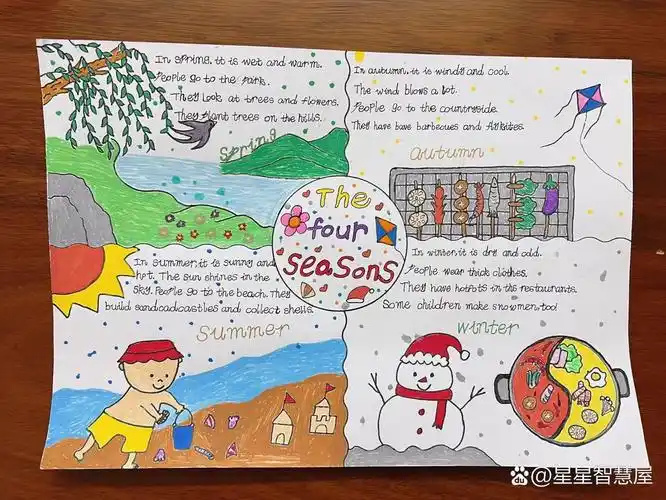 In spring, it is wet and warm.
People go to the park.
They look at trees and flowers.
They plant trees on the hills.
Spring
In autumn, it is windy and cool.
The wind blows a lot.
People go to the countryside.
They have bave barbecues and fly kites.
autumn
The
four
seasons
In summer, it is sunny and
hot. The sun shines in the
sky. People go to the beach. They
build sandcadcastles and collect shells.
Summer
In winter, it is dry and cold.
People wear thick clothes.
They have hotpots in the restaurants.
Some children make snowmen, too!
winter
Baidu @星星智慧屋